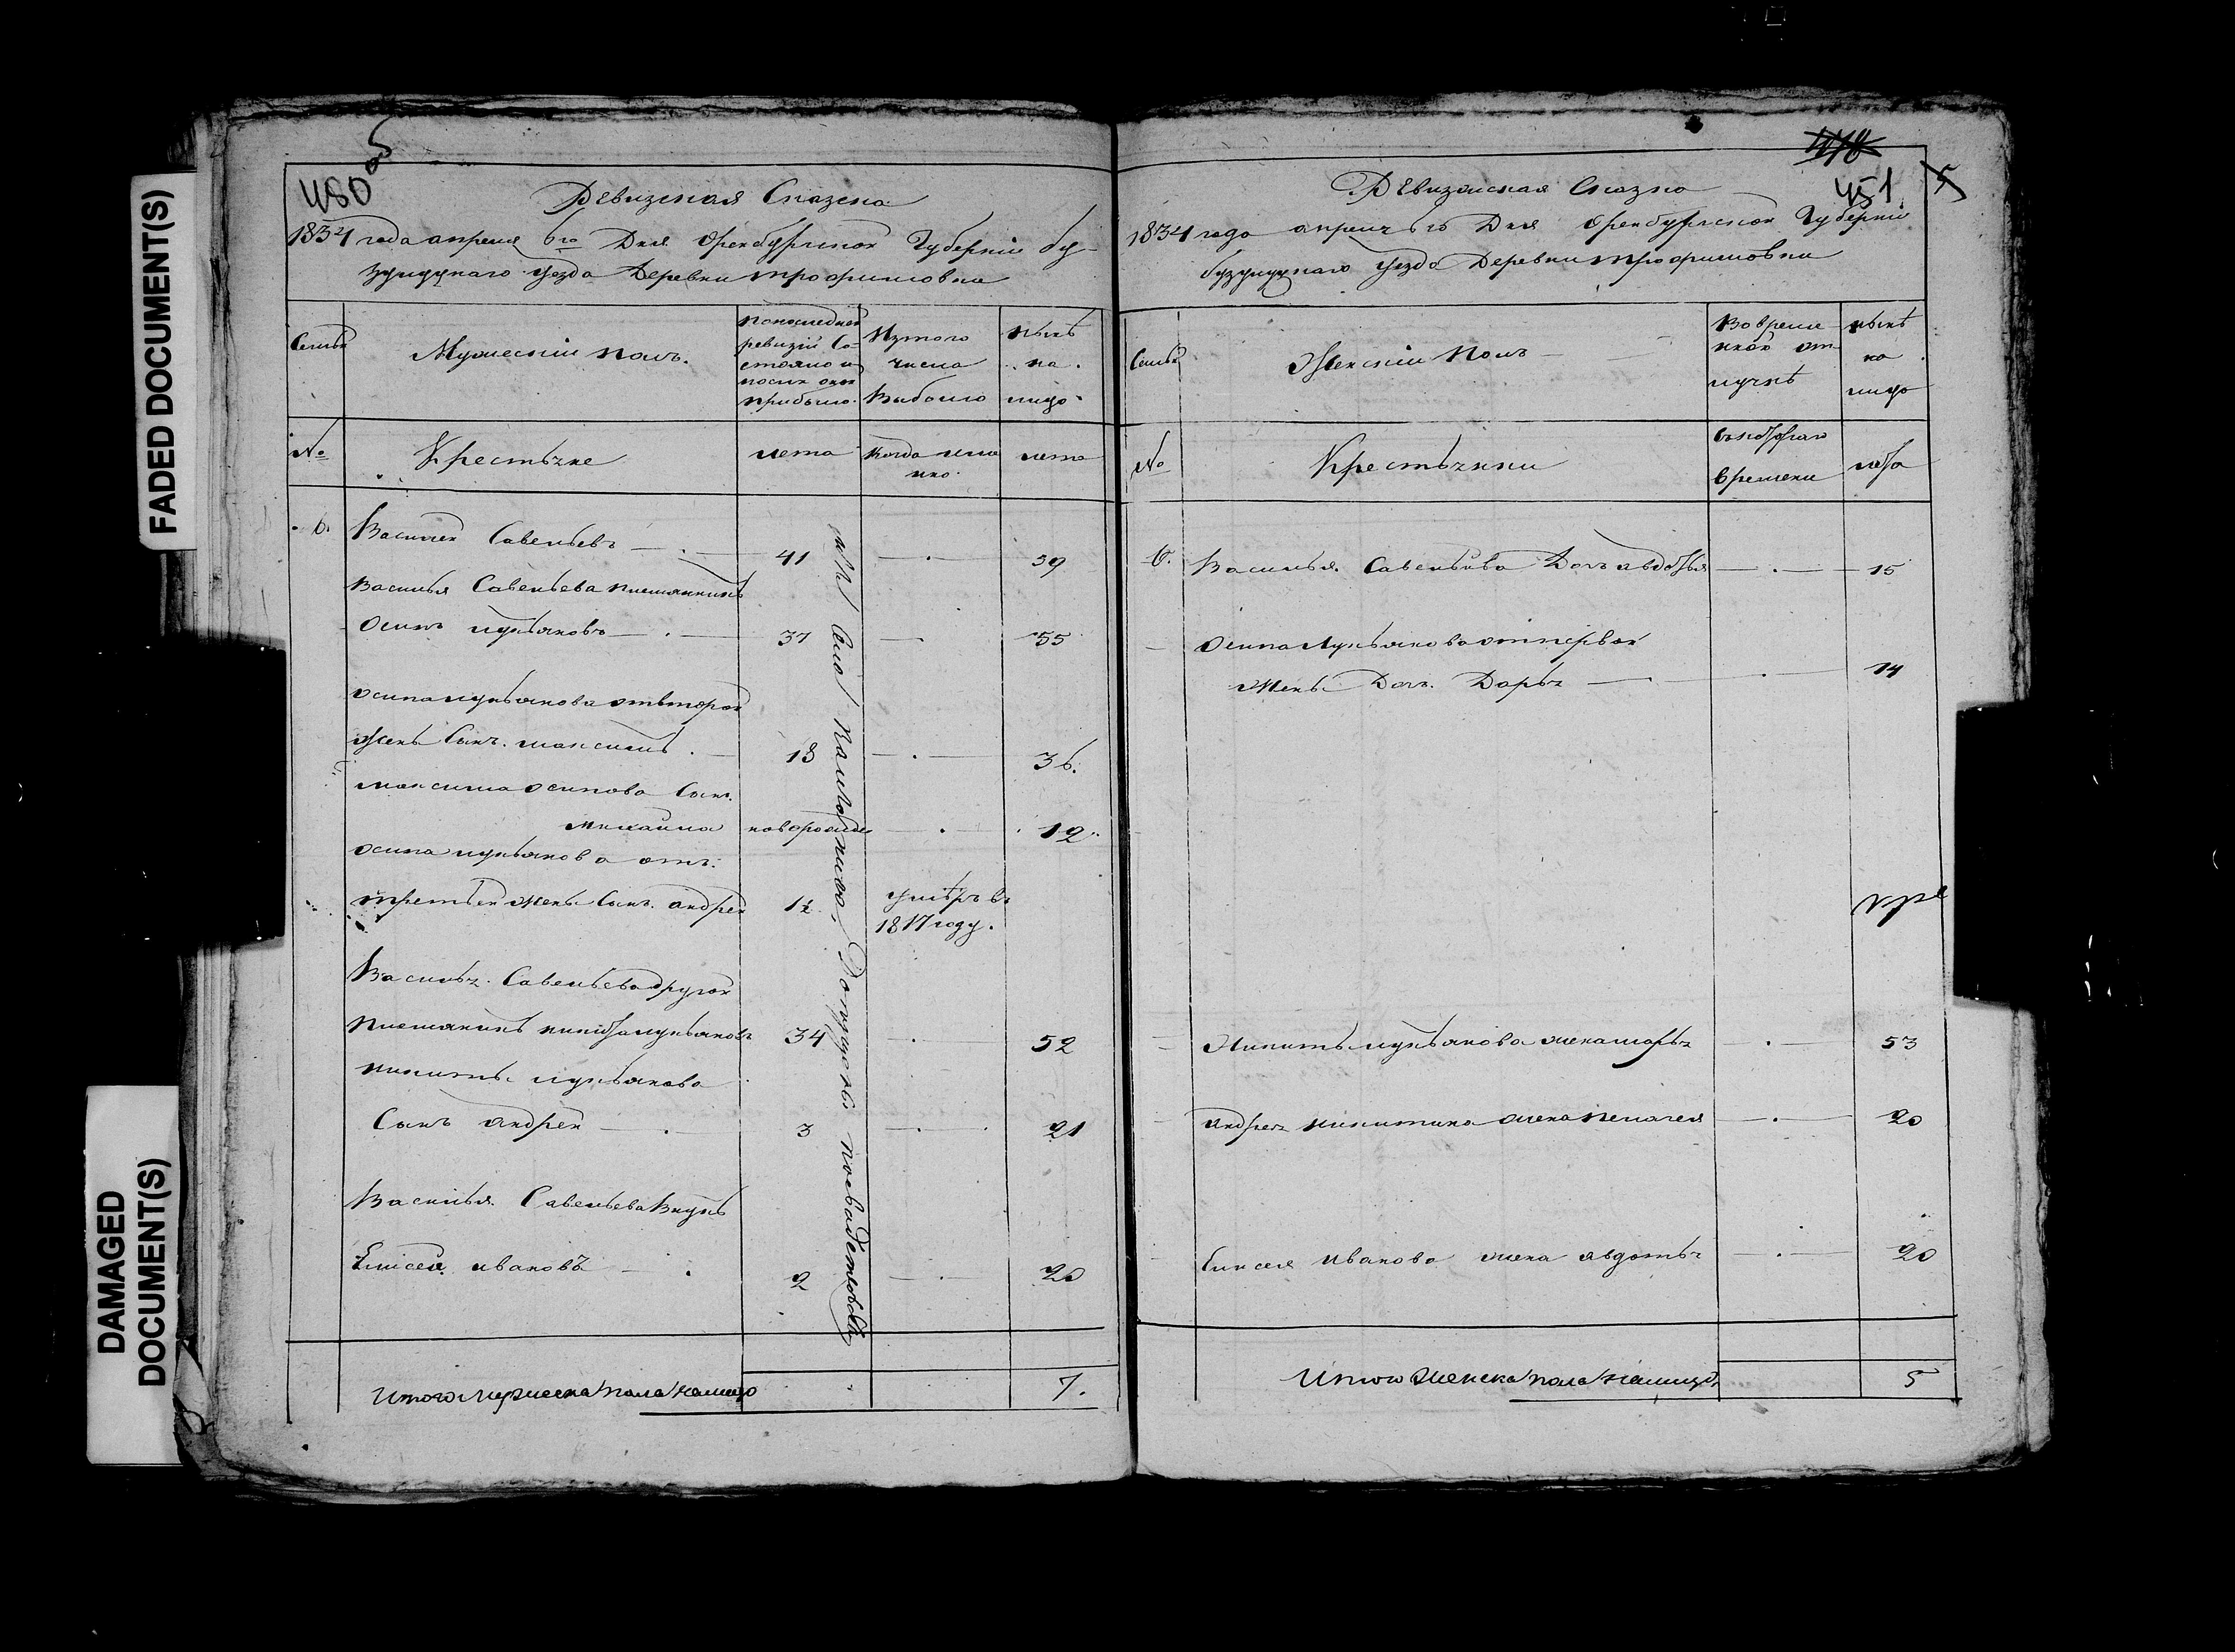 FADED DOCUMENT(S)
DAMAGED
DOCUMENT(S)
480 об
Ревизская Сказка
1834 года апреля 6го Дня Оренбургской Губернии бу-
зулуцкаго уезда Деревни трофимовки
Семьи
Мужеский полъ.
По последней
ревизии Со-
стояло и
после оной
прибыло.
Изтого
числа
Выбыло
ныне
на
лицо
№
Крестьяне
лета
когда имянно
лета
6.
Василей Савельевъ 41 39
Василья Савельева племянникъ
Осипъ лукьяновъ 37 55
осипа лукьянова отвторой
жены Сынъ. максимъ. 18 36.
максима осипова Сынъ
михайла новорожде 12.
осипа лукьянова отъ
третьей жены Сынъ. андрей 1½ умѣръ въ
1817 году.
Василья Савельева другой
племяникъ никита лукьяновъ 34 52
никиты лукьянова
Сынъ андрей 3 21
Василья Савельева Внукъ
Елисей ивановъ 2 20
Итого мужеска пола налицо 7.
451
5
Ревизская Сказка
1834 года апреля 6го Дня Оренбургской Губернии
бузулуцкаго уезда Деревни трофимовки
Семьи
Женский полъ
Во време-
нной от-
лучкѣ
ныне
на
лицо
№
Крестьянки
Съкотораго
времени
лета
6. Василья Савельива Дочь авдотья 15
Осипа Лукьянова отпервой
жены Дочь Дарья 14
Никиты лукьянова жена марья 53
андрея никитина жена пелагея 20
Елисея Иванова жена авдотья 20
Итого женска пола налицо 5